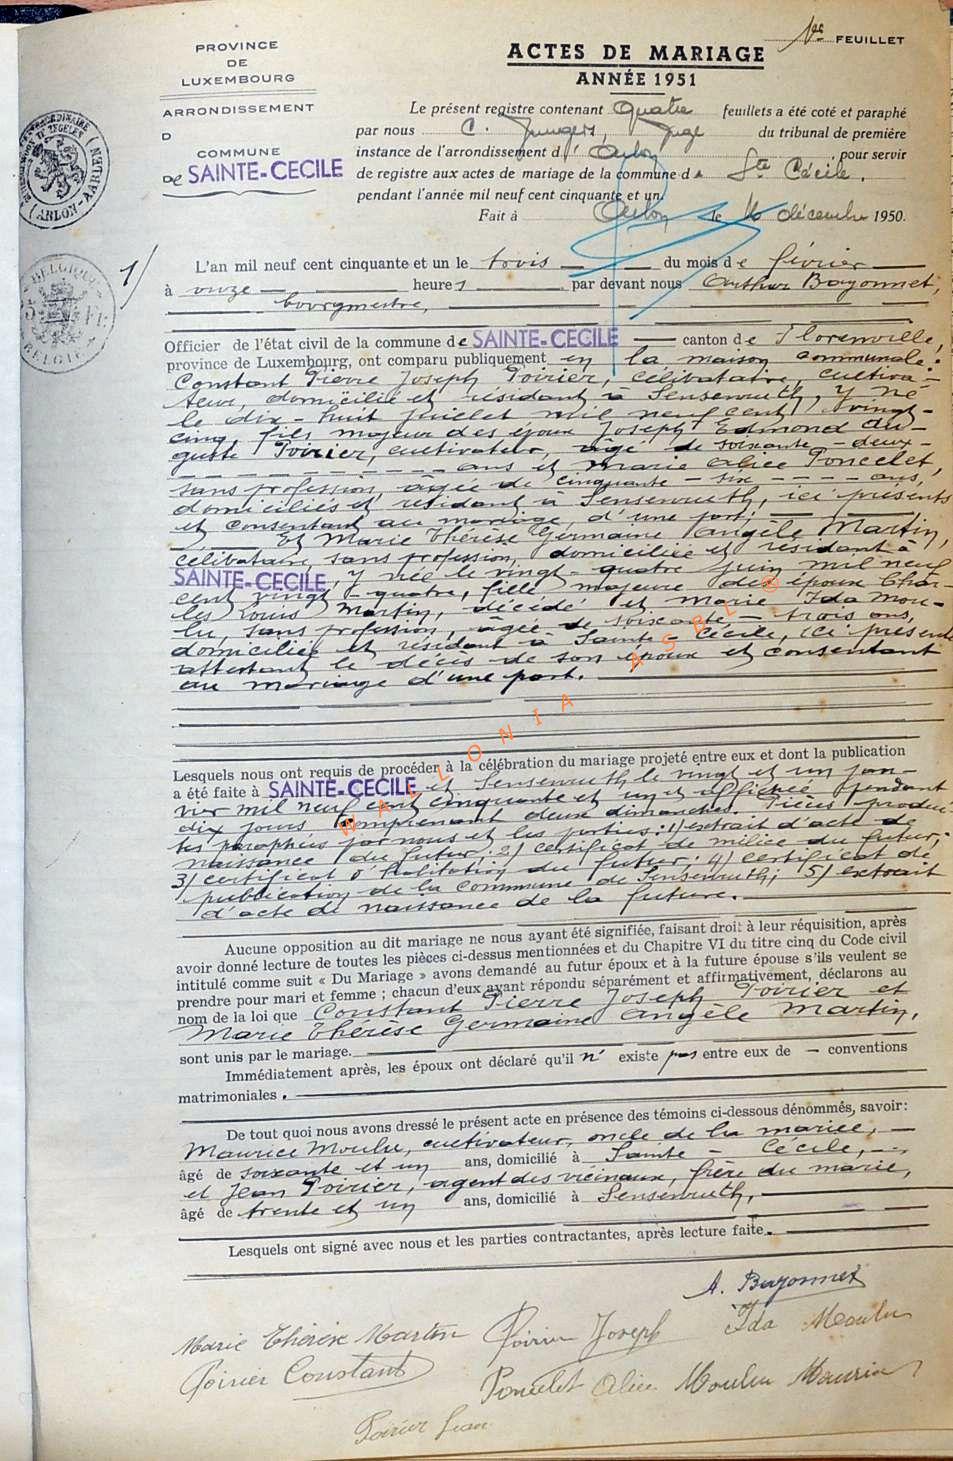 1er FEUILLET
PROVINCE
DE
LUXEMBOURG
ARRONDISSEMENT
D
COMMUNE
de SAINTE-CECILE
ARLON-AARDEN
BELGIQUE
BELGIË
ACTES DE MARIAGE
ANNÉE 1951
Le présent registre contenant quatre feuillets a été coté et paraphé
par nous C. Jungers, Juge du tribunal de première
instance de l'arrondissement d'Arlon, pour servir
de registre aux actes de mariage de la commune de Ste Cécile.
pendant l'année mil neuf cent cinquante et un.
Fait à Arlon le 16 décembre 1950.
1/
L'an mil neuf cent cinquante et un le trois du mois de février
à onze heures par devant nous Arthur Bayonnet,
bourgmestre,
Officier de l'état civil de la commune de SAINTE-CECILE canton de Florenville,
province de Luxembourg, ont comparu publiquement en la maison communale:
Constant Pierre Joseph Poirier, célibataire, cultiva-
teur, domicilié et résidant à Sensenruth, y né
le dix huit juillet mil neuf cent vingt-
cinq, fils majeur des époux Joseph Edmond Au-
guste Poirier, cultivateur, âgé de soixante-deux-
ans et Marie Alice Poncelet,
sans profession, âgée de cinquante-six ans,
domiciliés et résidant à Sensenruth, ici présents
et consentant au mariage, d'une part;
Et Marie Thérèse Germaine Angèle Martin,
célibataire, sans profession, domiciliée et résidant à
SAINTE-CECILE, y née le vingt-quatre juin mil neuf
cent vingt-quatre, fille majeure de époux Char-
les Louis Martin, décédé et Marie Ida Mou-
lu, sans profession, âgée de soixante-trois ans,
domiciliée et résidant à Sainte-Cécile, ici présente
attestant le décès de son époux et consentant
au mariage d'une part.
Lesquels nous ont requis de procéder à la célébration du mariage projeté entre eux et dont la publication
a été faite à SAINTE-CECILE et Sensenruth, le vingt et un jan-
vier mil neuf cent cinquante et un et affichée pendant
dix jours comprenant deux dimanches. Pièces produi-
tes paraphées par nous et les parties: 1) extrait d'acte de
naissance du futur; 2) certificat de milice du futur;
3) certificat d'habitation du futur; 4) certificat de
publication de la commune de Sensenruth; 5) extrait
d'acte de naissance de la future.
Aucune opposition au dit mariage ne nous ayant été signifiée, faisant droit à leur réquisition, après
avoir donné lecture de toutes les pièces ci-dessus mentionnées et du Chapitre VI du titre cinq du Code civil
intitulé comme suit « Du Mariage » avons demandé au futur époux et à la future épouse s'ils veulent se
prendre pour mari et femme ; chacun d'eux ayant répondu séparément et affirmativement, déclarons au
nom de la loi que Constant Pierre Joseph Poirier et
Marie Thérèse Germaine Angèle Martin,
sont unis par le mariage.
Immédiatement après, les époux ont déclaré qu'il n'existe pas entre eux de conventions
matrimoniales.
De tout quoi nous avons dressé le présent acte en présence des témoins ci-dessous dénommés, savoir:
Maurice Moulu, cultivateur, oncle de la mariée,
âgé de soixante et un ans, domicilié à Sainte-Cécile,
et Jean Poirier, agent des vicinaux, frère du marié,
âgé de trente et un ans, domicilié à Sensenruth,
Lesquels ont signé avec nous et les parties contractantes, après lecture faite.
A. Bayonnet
Marie Thérèse Martin Poirier Joseph Ida Moulu
Poirier Constant Poncelet Alice Moulu Maurice
Poirier Jean
WALLONIA ASBL ®